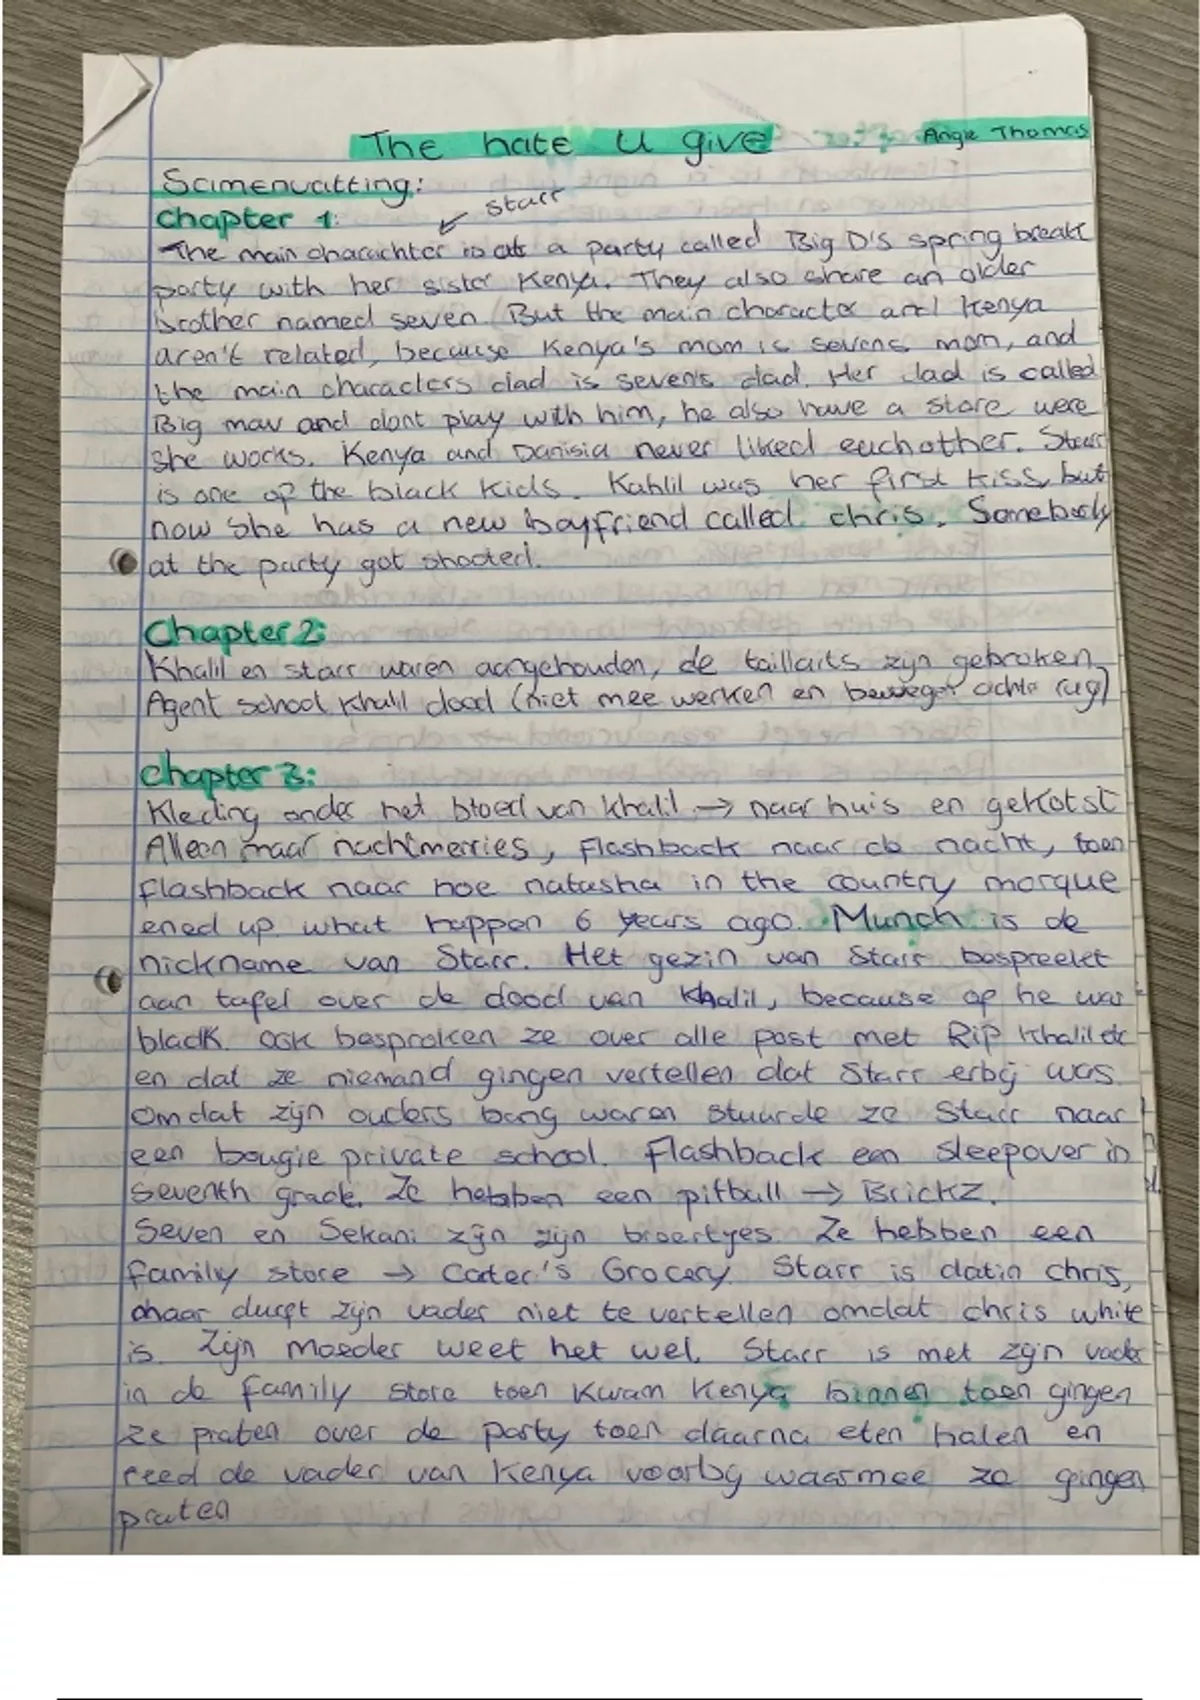 The hate u give
Angie Thomas
Samenvatting:
starr
Chapter 1:
The main charachter is at a party called Big D'S spring break
party with her sister Kenya. They also share an older
brother named seven. But the main character and Kenya
aren't related, because Kenya's mom is sevens mom, and
the main characters dad is seven's dad. Her dad is called
Big mav and dont play with him, he also have a store were
she works. Kenya and Danisia never liked eachother. Starr
is one of the black kids. Kahlil was her first kiss, but
now she has a new boyfriend called chris. Somebody
at the party got shooted.
Chapter 2:
Khalil en starr waren aangehouden, de taillaits zijn gebroken
Agent school Khalil dood (niet mee werken en bewegen achte rug)
chapter 3:
Kleding onder het bloed van Khalil → naar huis en gekotst
Alleen maar nachtmerries, flashback naar de nacht, toen
flashback naar hoe natasha in the country morque
ened up what happen 6 years ago. Munch is de
nickname van Starr. Het gezin van Starr bespreekt
aan tafel over de dood van Khalil, because of he was
black. ook besproken ze over alle post met Rip Khalil etc
en dat ze niemand gingen vertellen dat Starr erbij was
Omdat zijn ouders bang waren stuurde ze Starr naar
een bougie private school. Flashback een sleepover in
seventh grade. Ze hebben een pitbull → Brickz.
Seven en Sekani zijn zijn broertjes. Ze hebben een
family store → Carter's Grocery. Starr is datin chris,
maar durft zijn vader niet te vertellen omdat chris white
is. Zijn moeder weet het wel. Starr is met zijn vader
in de family store toen kwam Kenya binnen toen gingen
ze praten over de party toen daarna eten halen en
reed de vader van Kenya voorbij waarmee ze gingen
praten